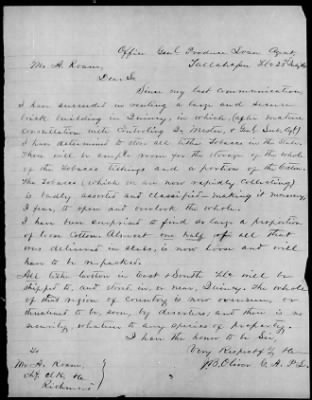 Office Genl Produce Loan Agent,
Tallahassee Fla 25 July
Mr A. Roane,
Dear Sir
Since my last communication,
I have succeeded in renting a large and secure
brick building in Quincy, in which (after mature
consultation with Controling Qr Master, & Genl Sub Agt)
I have determined to store all tithe tobacco in the State.
There will be ample room for the storage of the whole
of the tobacco tithings and a portion of the Cotton.
The tobacco (which we are now rapidly collecting)
is badly assorted and classified making it necessary,
I fear, to open and overhaul the whole.
I have been surprised to find so large a proportion
of loan Cotton. Almost one half of all that
was delivered in sacks, is now loose and will
have to be repacked.
All tithe Cotton in East & South Fla. will be
shipped to, and stored in, or near, Quincy. The whole
of that region of country is now overrun, or
threatened to be, soon, by deserters, and there is no
security, whatever to any species of property.
I have the honor to be Sir,
Very Respectfully &c
To
Mr A. Roane,
chf Clk &c
Richmond
B. Oliver G. A. P. L.